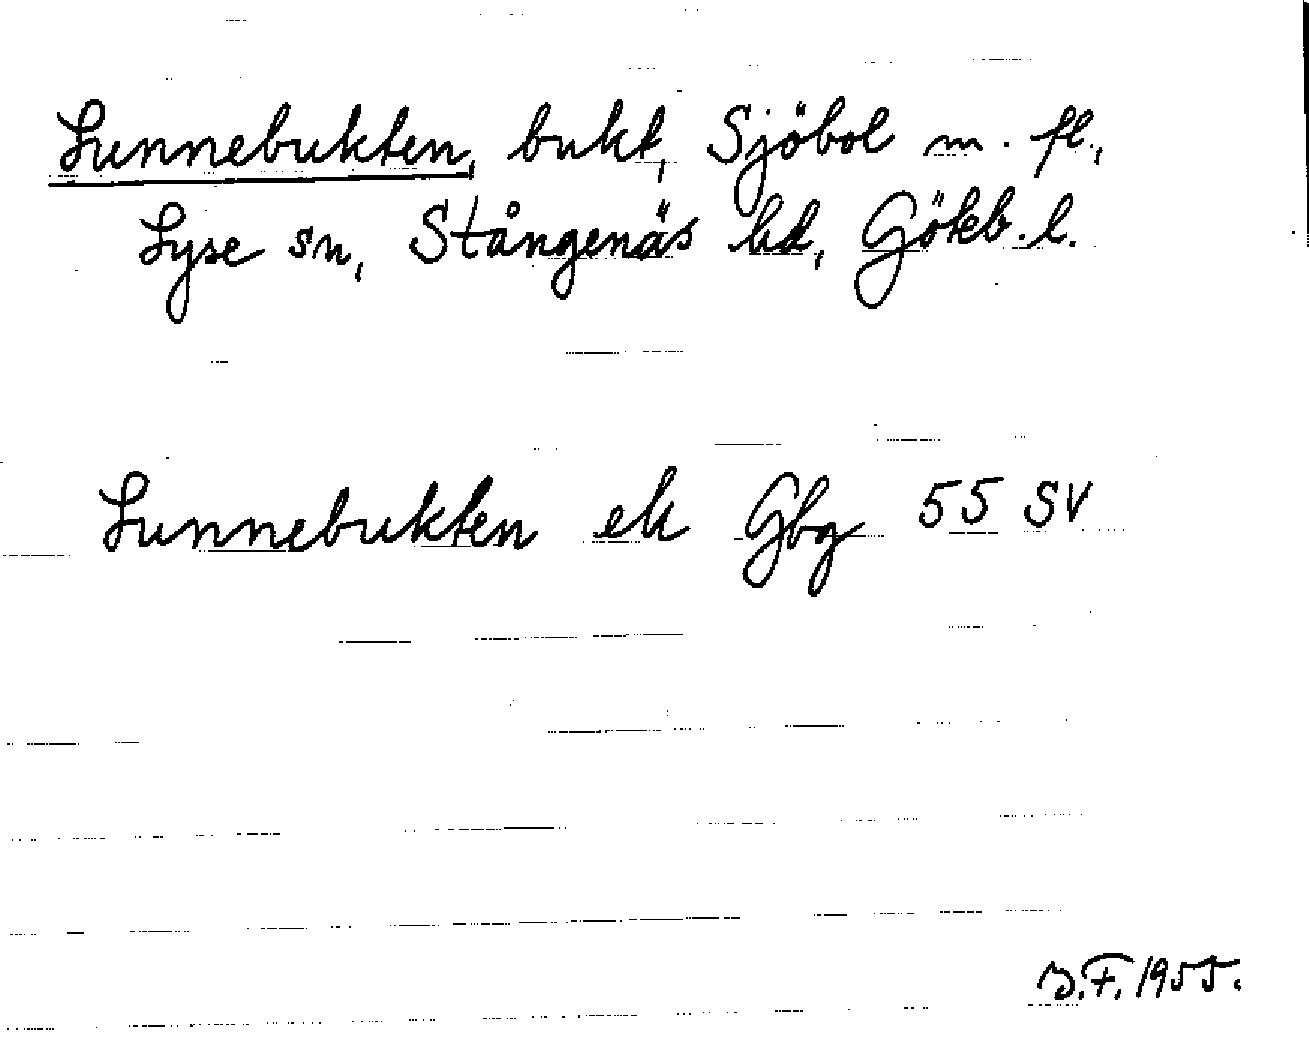 Lunnebukten, bukt, Sjöbol m. fl.,
Lyse sn, Stångenäs hd, Göteb. l.
Lunnebukten ek Gbg 55 SV
J.F. 1955.